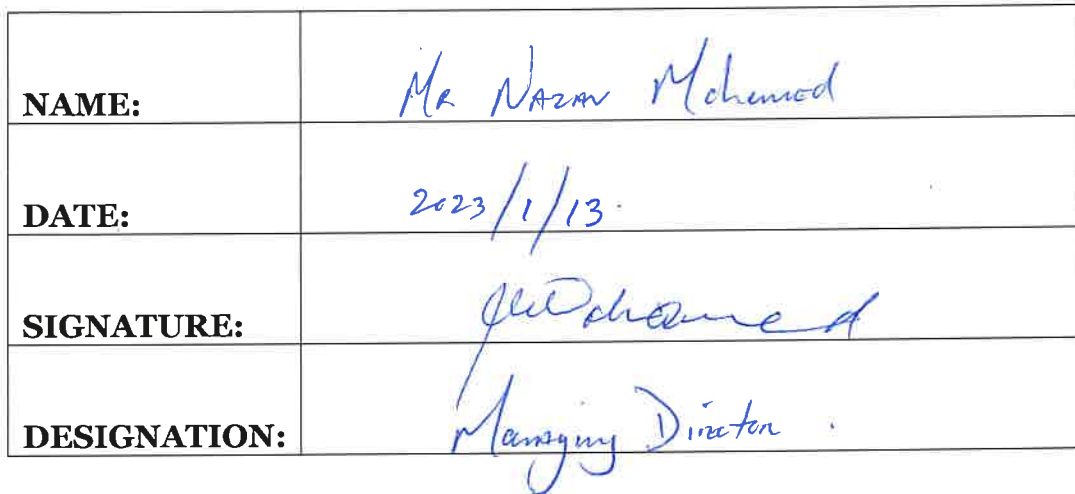 NAME: Mr Nazav Mohamed
DATE: 2023/1/13.
SIGNATURE: Mohamed
DESIGNATION: Managing Director.